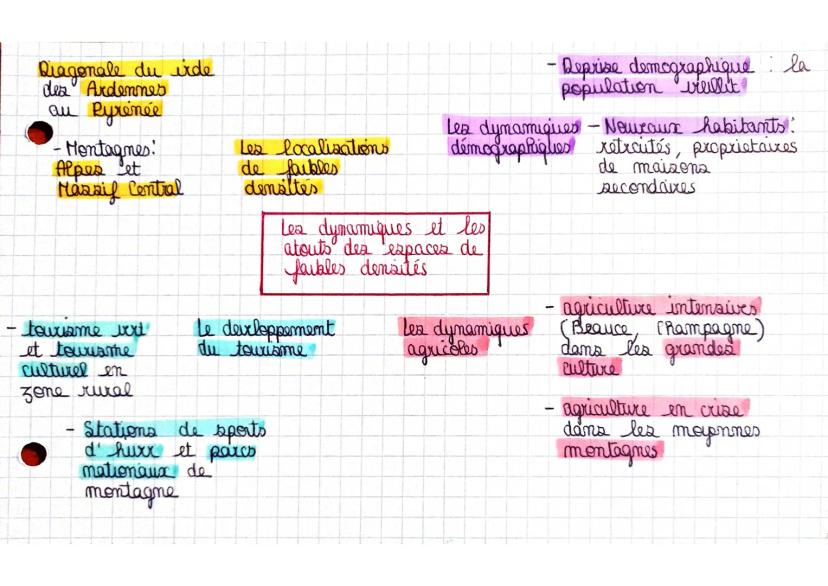 Diagonale du vide
des Ardennes
au Pyrénée
- Montagnes:
Alpes et
Massif Central
Les localisations
de faibles
densités
Les dynamiques
démographiques
- Deprise demographique : la
population vieillit
- Nouveaux habitants:
retraités, proprietaires
de maisons
secondaires
Les dynamiques et les
atouts des espaces de
faibles densités
- tourisme vert
et tourisme
culturel en
zone rural
Le developpement
du tourisme
- Stations de sports
d'hiver et parcs
nationaux de
montagne
Les dynamiques
agricoles
- agriculture intensives
(Beauce, Champagne)
dans les grandes
culture
- agriculture en crise
dans les moyennes
montagnes